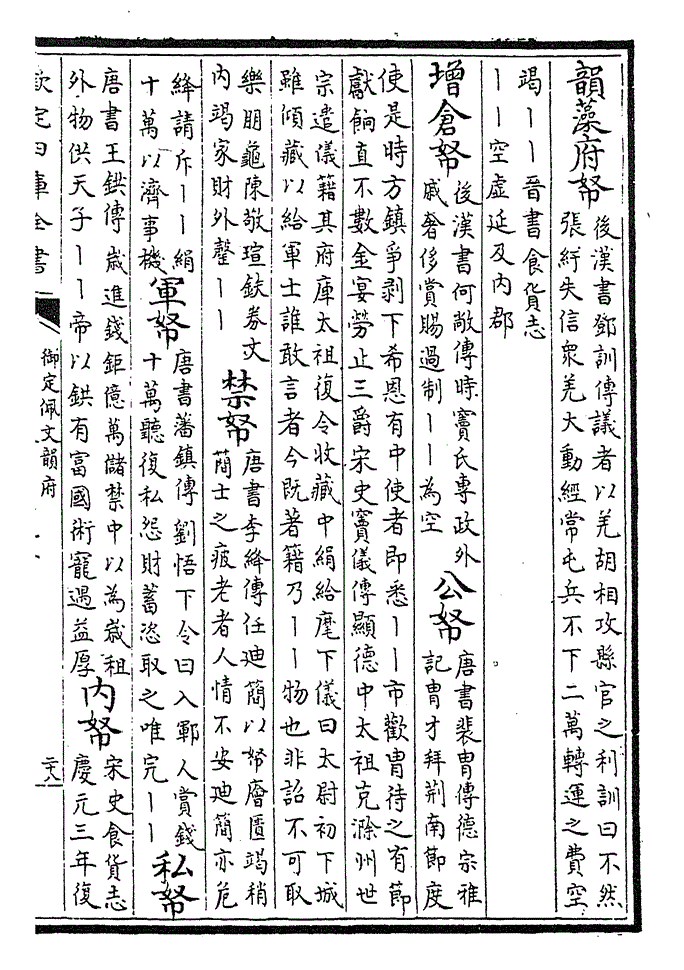 韻藻府帑
後漢書鄧訓傳議者以羌胡相攻縣官之利訓曰不然
張紆失信衆羌大動經常屯兵不下二萬轉運之費空
竭丨丨晉書食貨志
丨丨空虛延及内郡
增倉帑
後漢書何敞傳時竇氏專政外
戚奢侈賞賜過制丨丨為空
公帑
唐書裴冑傳德宗雅
記冑才拜荆南節度
使是時方鎮爭剥下希恩有中使者即悉丨丨市歡冑待之有節
獻餉直不數金宴勞止三爵宋史竇儀傳顯德中太祖克滁州世
宗遣儀籍其府庫太祖復令收藏中絹給麾下儀曰太尉初下城
雖傾藏以給軍士誰敢言者今既著籍乃丨丨物也非詔不可取
樂朋龜陳敬瑄鉄券文
内竭家財外罄丨丨
禁帑
唐書李絳傳任迪簡以帑廥匱竭稍
簡士之疲老者人情不安迪簡亦危
絳請斥丨丨絹
十萬以濟事機
軍帑
唐書藩鎮傳劉悟下令曰入鄆人賞錢
十萬聽復私怨財蓄恣取之唯完丨丨
私帑
唐書王鉷傳歲進錢鉅億萬儲禁中以為歲租
外物供天子丨丨帝以鉷有富國術寵遇益厚
内帑
宋史食貨志
慶元三年復
欽定四庫全書
御定佩文韻府
二十八